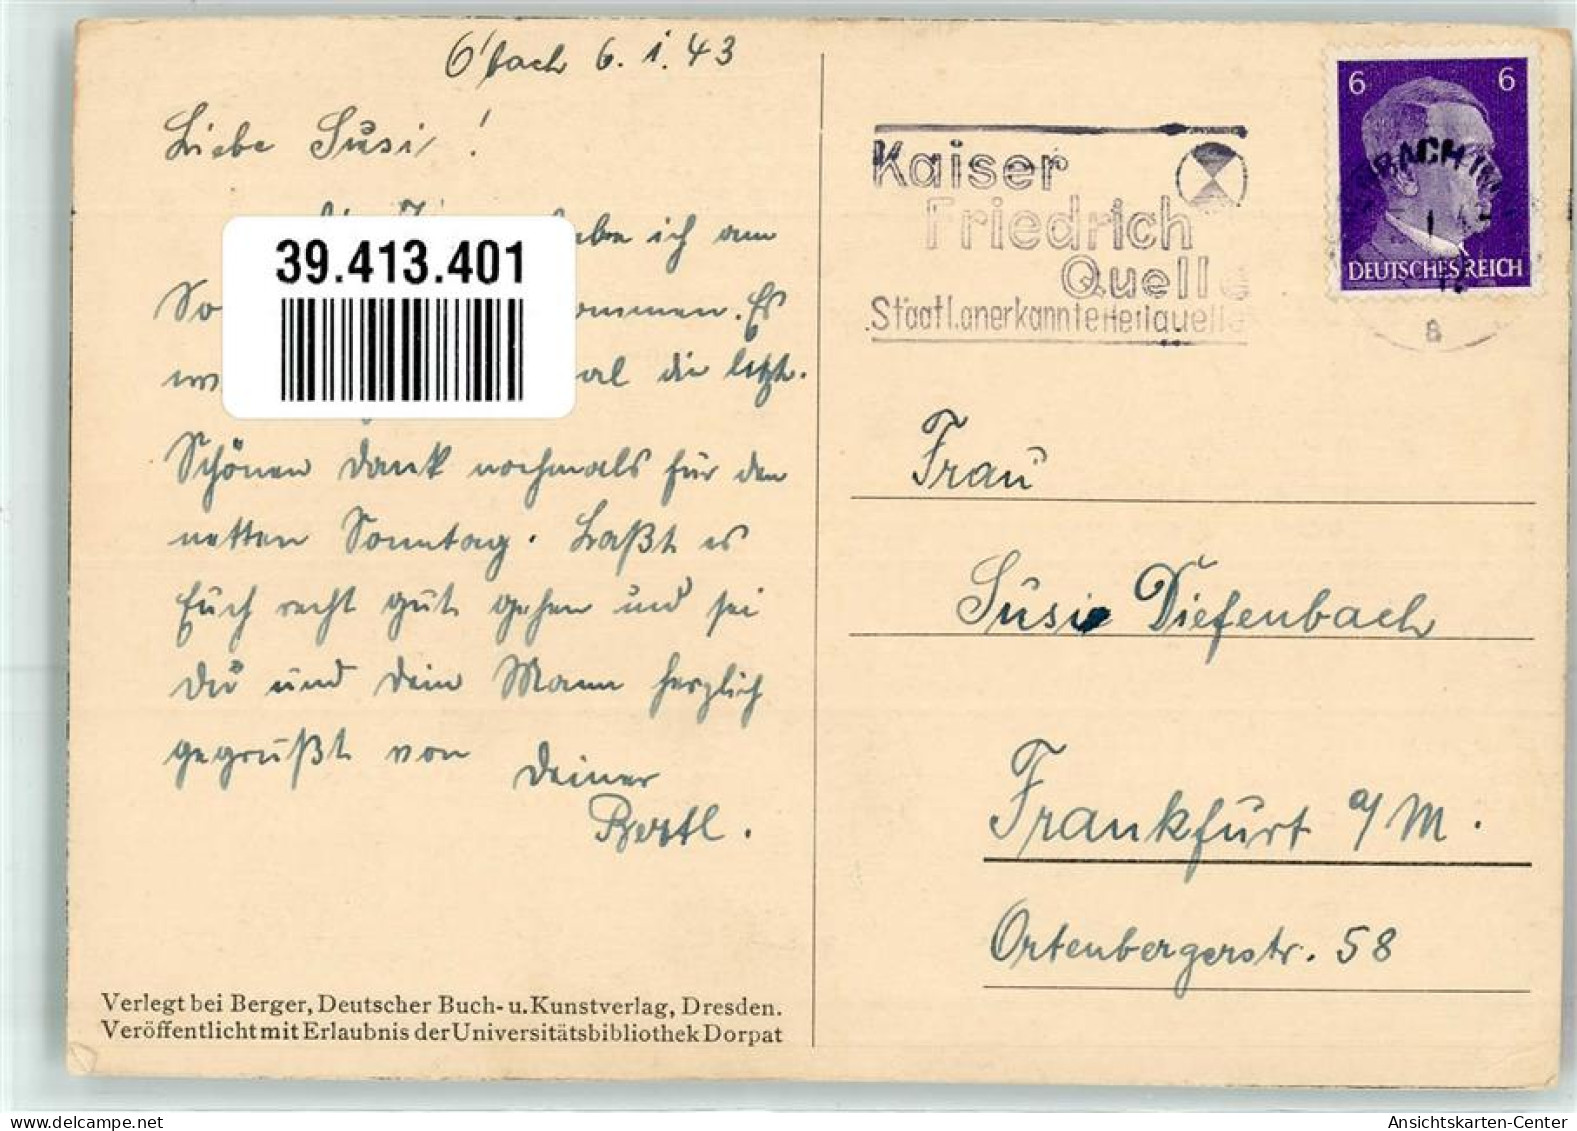 O'bach 6.1.43
Liebe Susi!
habe ich am
So
ommen. Es
al die letzt.
Schönen Dank nochmals für den
netten Sonntag. Laßt es
Euch recht gut gehen und sei
Du und Dein Mann herzlich
gegrüßt von Deiner
Bertl.
39.413.401
Verlegt bei Berger, Deutscher Buch- u. Kunstverlag, Dresden.
Veröffentlicht mit Erlaubnis der Universitätsbibliothek Dorpat
Kaiser
Friedrich
Quelle
Staatl. anerkannte Heilquelle
6 6
DEUTSCHES REICH
a
Frau
Susi Diefenbach
Frankfurt a/M.
Ortenbergerstr. 58
Ansichtskarten-Center